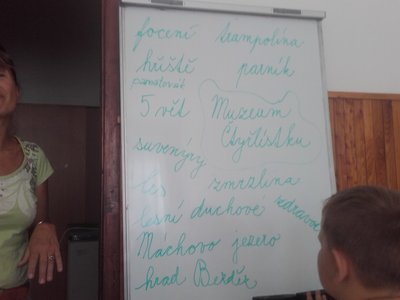 focení trampolína
hřiště parník
pamatovač
5 vět Muzeum
Čtyřlístku
suvenýry
les zmrzlina
lesní duchové zdravověda
Máchovo jezero
hrad Bezděz